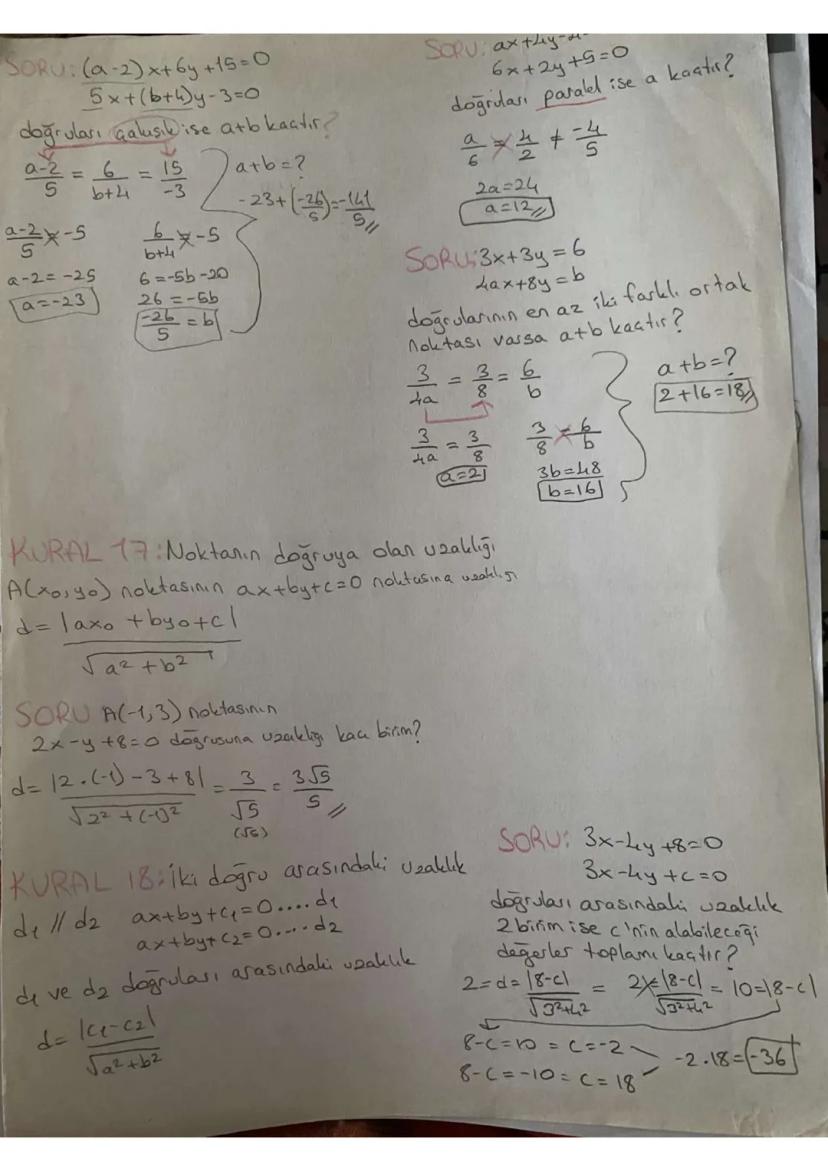 SORU: (a-2)x+6y+15=0
5x+(b+4)y-3=0
doğruları çakışık ise a+b kaçtır?
a-2/5 = 6/b+4 = 15/-3
a-2/5 = -5
6/b+4 = -5
a-2 = -25
6 = -5b-20
a=-23
26 = -5b
-26/5 = b
a+b=?
-23+(-26/5)=-141/5
SORU: ax+4y-4
6x+2y+5=0
doğruları paralel ise a kaçtır?
a/6 = 4/2 ≠ -4/5
2a=24
a=12
SORU: 3x+3y=6
4ax+8y=b
doğrularının en az iki farklı ortak
noktası varsa a+b kaçtır?
3/4a = 3/8 = 6/b
3/4a = 3/8
3/8 = 6/b
a=2
3b=48
b=16
a+b=?
2+16=18
KURAL 17: Noktanın doğruya olan uzaklığı
A(x₀,y₀) noktasının ax+by+c=0 noktasına uzaklığı
d= |ax₀+by₀+c|/√a²+b²
SORU A(-1,3) noktasının
2x-y+8=0 doğrusuna uzaklığı kaç birim?
d= |2.(-1)-3+8|/√2²+(-1)² = 3/√5 = 3√5/5
(√5)
KURAL 18: İki doğru arasındaki uzaklık
d₁ // d₂ ax+by+c₁=0....d₁
ax+by+c₂=0....d₂
d₁ ve d₂ doğruları arasındaki uzaklık
d= |c₁-c₂|/√a²+b²
SORU: 3x-4y+8=0
3x-4y+c=0
doğruları arasındaki uzaklık
2 birim ise c'nin alabileceği
değerler toplamı kaçtır?
2=d= |8-c|/√3²+4² = 2= |8-c|/√3²+4² = 10=|8-c|
8-c=10 = c=-2
8-c=-10 = c=18
-2.18=-36